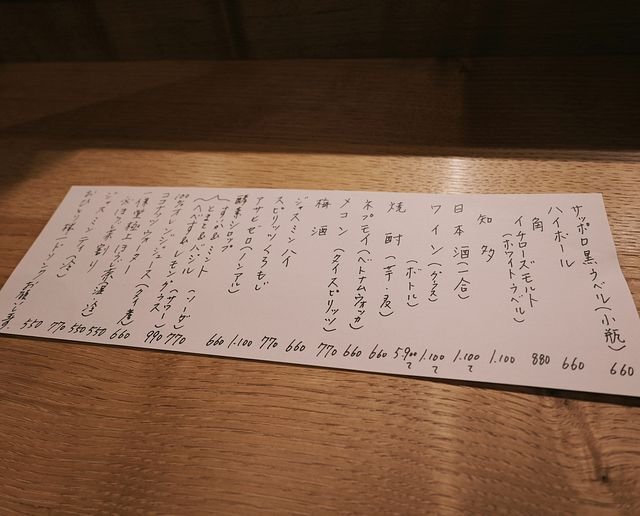 サッポロ黒ラベル(小瓶) 660
ハイボール
角 660
イチローズモルト
(ホワイトラベル) 880
知多 1.100
日本酒(一合) 1.100〜
ワイン(グラス) 1.100〜
(ボトル) 5.900〜
焼酎(芋・麦) 660
ネプモイ(ベトナムウォッカ) 660
メコン(タイスピリッツ) 660
梅酒 770
ジャスミンハイ 660
スピリッツくろもじ 770
アサヒゼロ(ノンアル) 1.100
酵素シロップ
すいか&ミント
とまと&バジル
へべす&レモン(ソーダ) 660
100%オレンジジュース 770
ココナッツウォーター 990
一保堂極上ほうじ茶(温・冷)
ジャスミンティ(冷)
おひとり様一ドリンクお願いします。
550